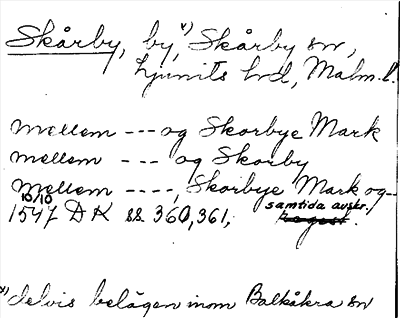 Skårby, by,ˣ⁾ Skårby sn,
Ljunits hd, Malm. l.
mellem --- og Skorbye Mark
mellem --- og Skorby
mellem ----, Skorbye Mark og--
10/10 samtida avskr.
1547 DK ss. 360,361, Regest.
x) delvis belägen inom Balkåkra sn